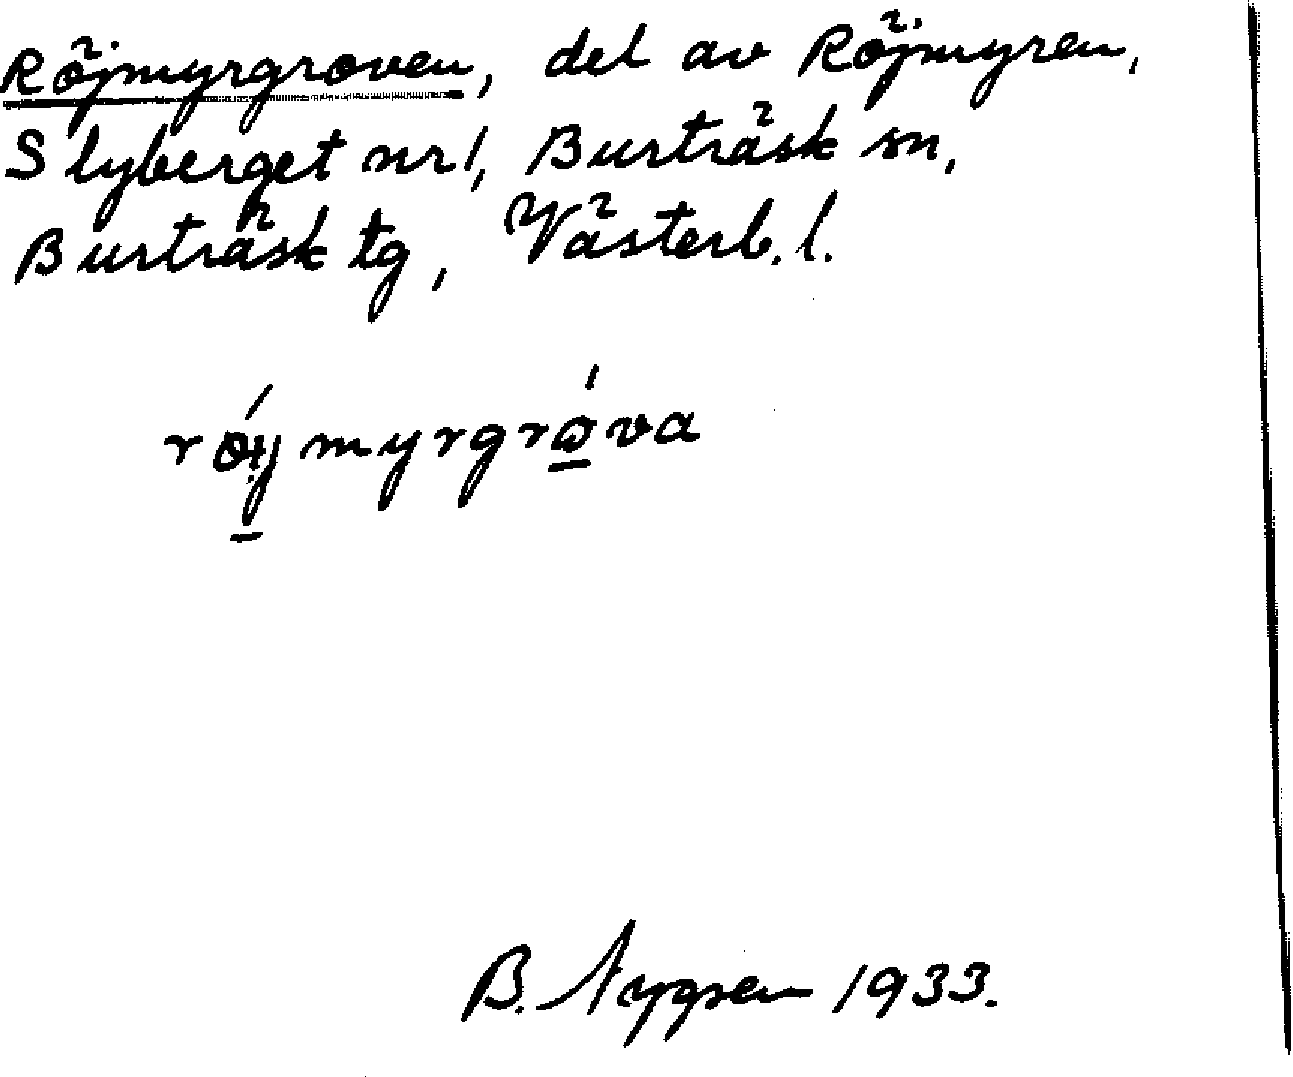 Röjmyrgroven, del av Röjmyren,
Slyberget nr 1, Burträsk sn,
Burträsk tg, Västerb. l.
røjmyrgrova
B. Nygren 1933.